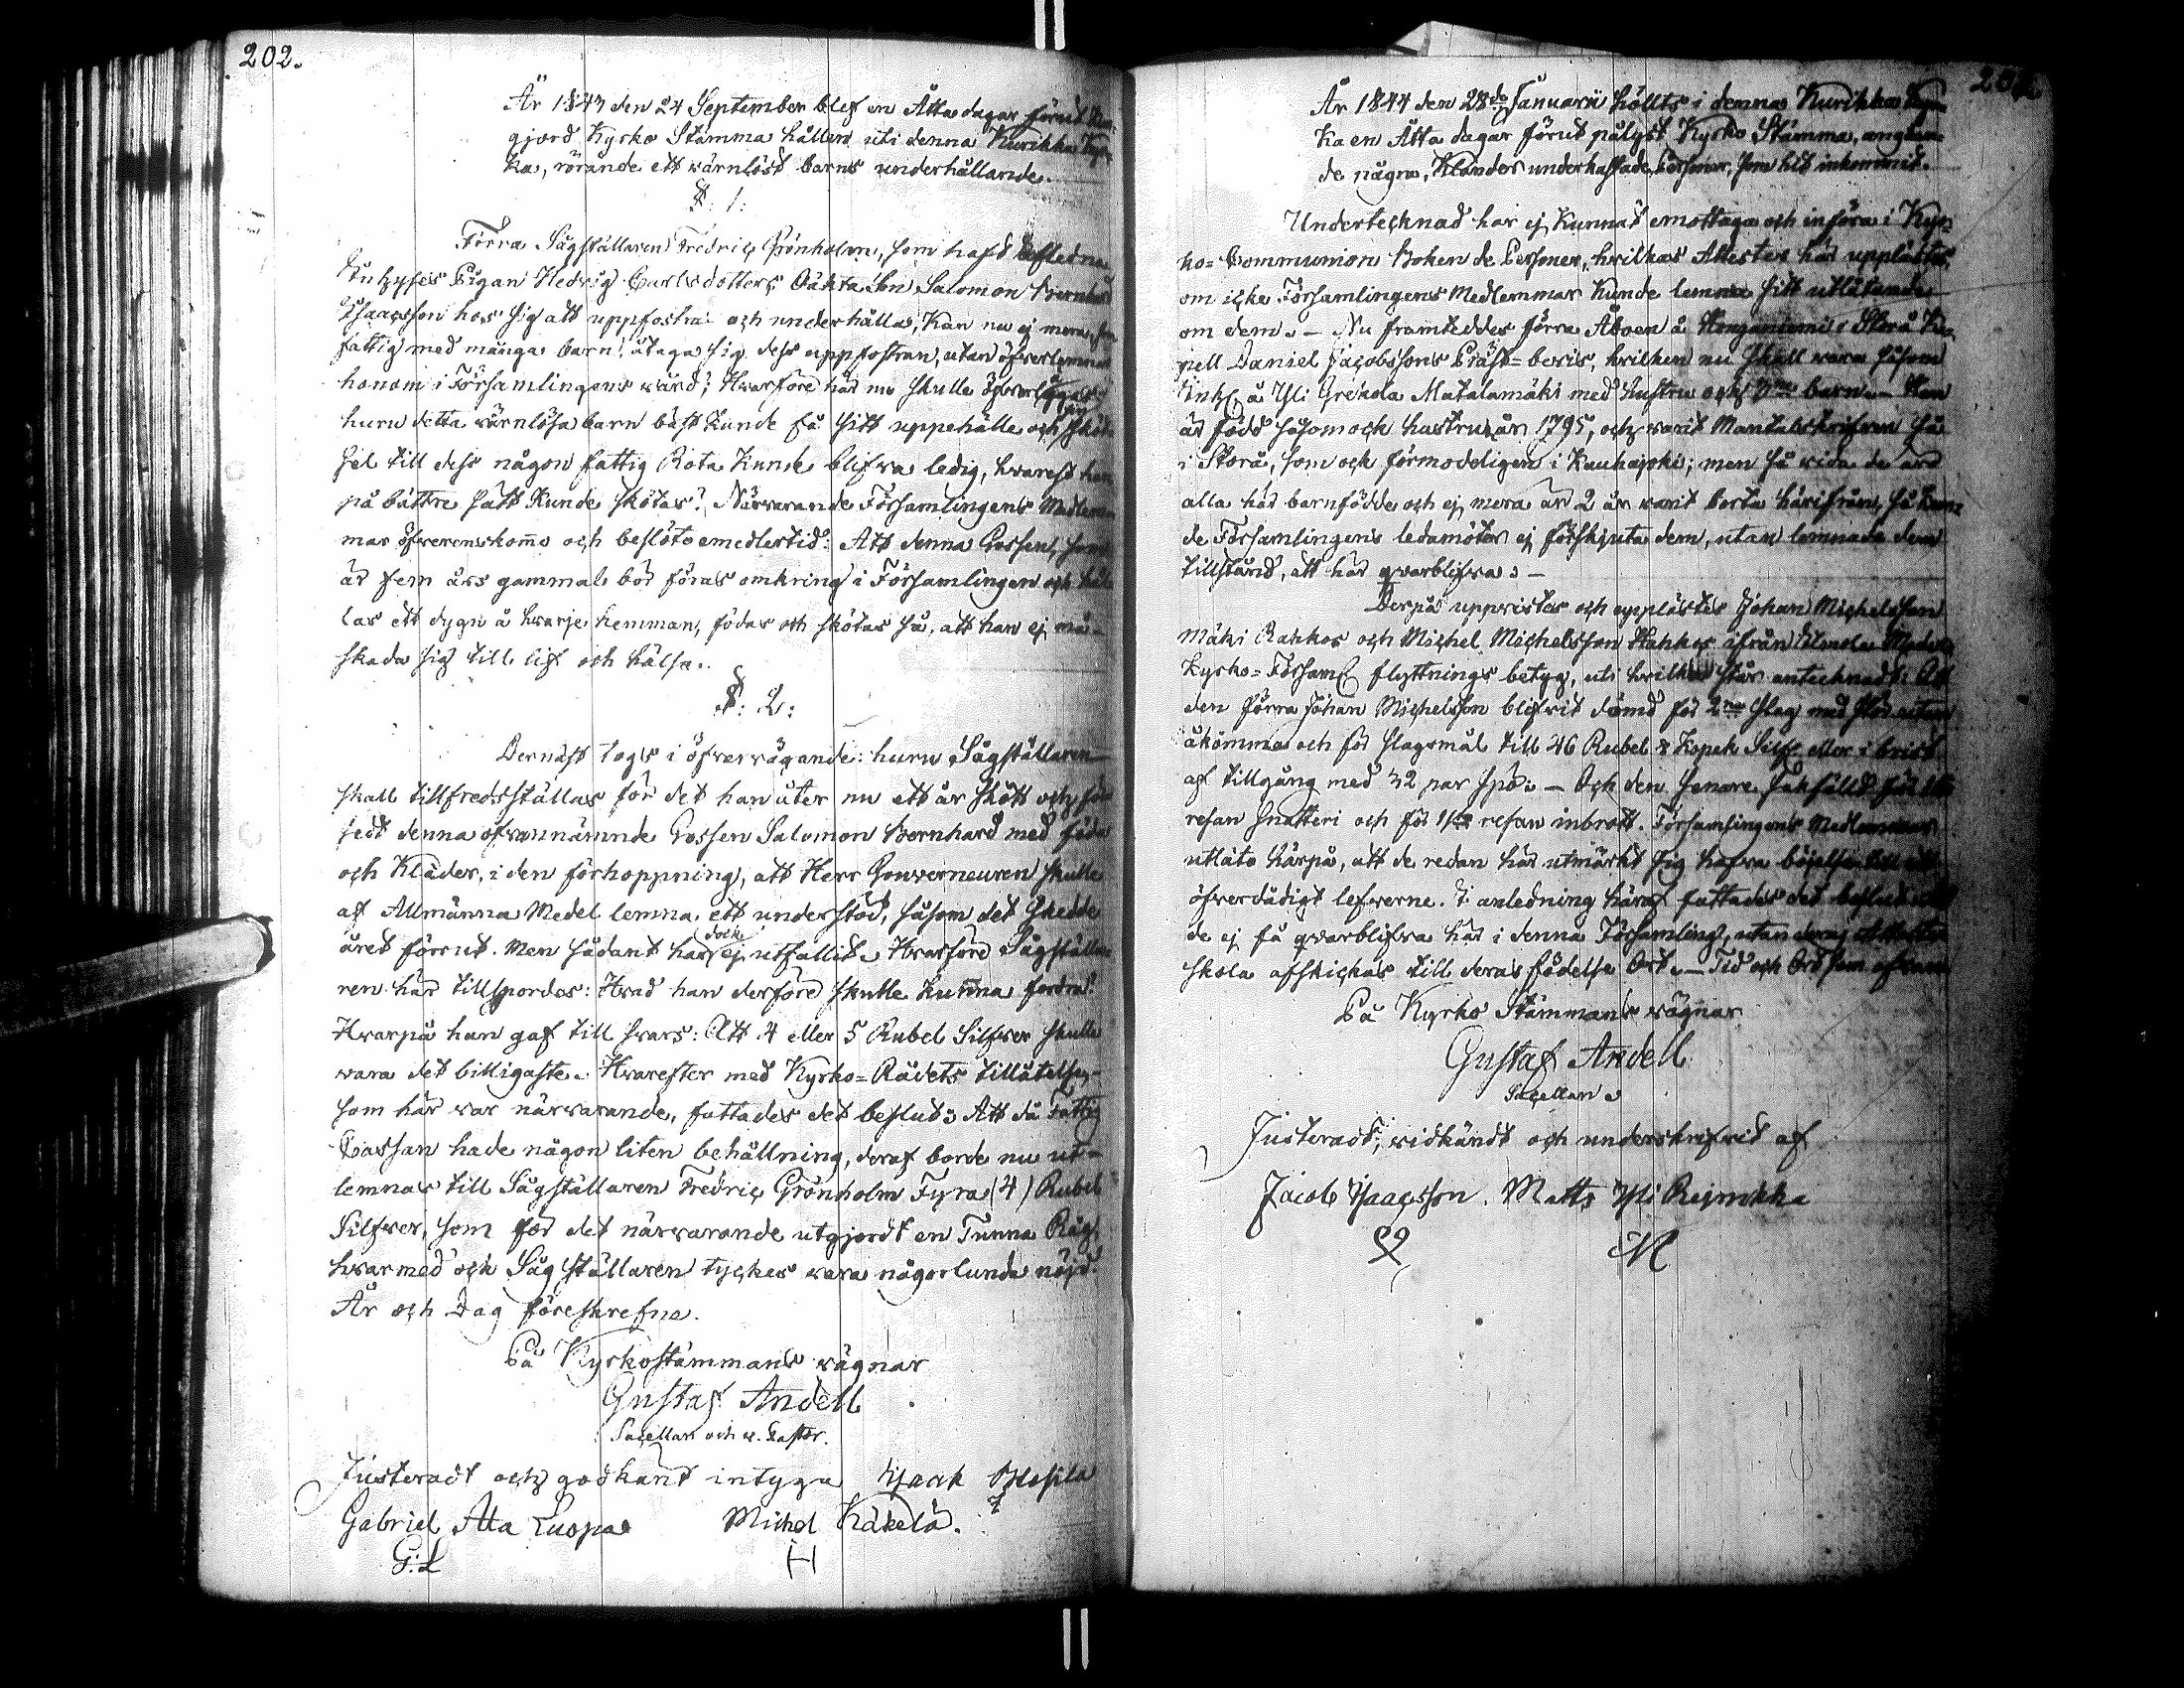 202.
År 1843 den 24 September blef en Åtta dagar förut
gjord Kyrko Stämma hållen uti denna Kurikka Kyr-
ka, rörande ett wärnlöst barns underhållande.
§: 1:
Förra Sågställaren Fredric Grönholm, som haft afledna
Inhyses Pigan Hedvig Carlsdotters Oäkta Son Salomon Bernhard
Isaacsson hos sig att uppfostra och underhålla, Kan nu ej mera, som
fattig med många barn, åtaga sig dess uppfostran, utan öfverlemnar
honom i Församlingens wård; Hwarföre här nu skulle öfwerläggas:
huru detta wärnlösa barn bäst Kunde få sitt uppehälle och sköt-
sel till dess någon fattig Rota Kunde blifwa ledig, hwarest han
på bättre sätt Kunde skötas? Närwarande Församlingens Medlem-
mar öfwerenskommo och beslöto emedlertid: Att denna Gossen, som
är fem års gammal bör föras omkring i Församlingen och hål-
las ett dygn å hwarje hemman, födas och skötas så, att han ej må
skada sig till lif och hälsa.
§: 2:
Dernäst togs i öfwerwägande: huru Sågställaren
skall tillfredsställas för det han åter nu ett år skött och fö-
sedt denna ofwannämnde Gossen Salomon Bernhard med föda
och Kläder, i den förhoppning, att Herr Gouverneuren skulle
af Allmänna Medel lemna ett understöd, såsom det skedde
året förrut. Men sådant har dock ej utfallit. Hwarföre Sågställa-
ren här tillspordes: Hwad han derföre skulle Kunna fordra?
Hwarpå han gaf till swars: Att 4 eller 5 Rubel Silfwer skulle
wara det billigaste. Hwarefter med Kyrko-Rådets tillåtelse,
som här war närwarande, fattades det beslut: Att då Fattig
Cassan hade någon liten behållning, deraf borde nu ut-
lemnas till Sågställaren Fredric Grönholm Fyra (4) Rubel
Silfwer, som för det närwarande utgjordt en Tunna Råg,
hwarmed och Sågställaren tyckes wara någorlunda nöjd.
År och Dag föreskrefne.
På Kyrkostämmans wägnar
Gustaf Andell
Sacellan och v. Pastor.
Justeradt och godkänt intyga Isaak
Gabriel Ala Luopa Michel Käkelä.
G:L H
År 1844 den 28de Januarii hölls i denna Kurikka Kyr-
ka en Åtta dagar förut pålyst Kyrko Stämma, angåen-
de några, Klander underkastade, Personer, som hit inkommit.
Undertecknad har ej Kunnat emottaga och införa i Kyr-
ko-Communion Boken de Personer, hwilkas Attester här upplästes,
om icke Församlingens Medlemmar Kunde lemna sitt utlåtande
om dem. - Nu framteddes förra Åboen å i Storå Ka-
pell Daniel Jacobssons Präst-bevis, hvilken nu skall wara såsom
Inh. å Yli Grekola Matalamäki med hustru och barn. - Han
är född såsom och hustrun år 1795, och warit Mantalskrifwen så
i Storå, som och förmodeligen i Kauhajoki; men så wida de äro
alla här barnfödde och ej mera än 2 år warit borta härifrån, så Kun-
de Församlingens ledamöter ej förskjuta dem, utan lemnade dem
tillstånd, att här qwarblifwa: -
Derpå uppwistes och upplästes Johan Michelsson
Mäki Rahkos och Michel Michelsson ifrån
Kyrko-Förs. flyttnings betyg, uti hwilka står antecknadt: Att
den förra Johan Michelsson blifwit dömd för 2ne slag med
åkomma och för slagsmål till 46 Rubel 8 Kopek Silf. eller i brist
af tillgång med 32 par spö: - Och den senare sakfälld för
resan snatteri och för 1sta resan inbrott. Församlingens Medlemmar
utläto härpå, att de redan här utmärkt sig hafwa böjelse till ett
öfwerdådigt lefwerne. I anledning häraf fattades det beslut att
de ej få qwarblifwa här i denna Församling, utan deras Attester
skola afskickas till deras födelse Ort. - Tid och Ort som ofwan
På Kyrko Stämmans wägnar
Gustaf Andell
Sacellan.
Justeradt, widkändt och underskrifwit af
Jacob Isaacsson. Matts Yli Reinikka
M